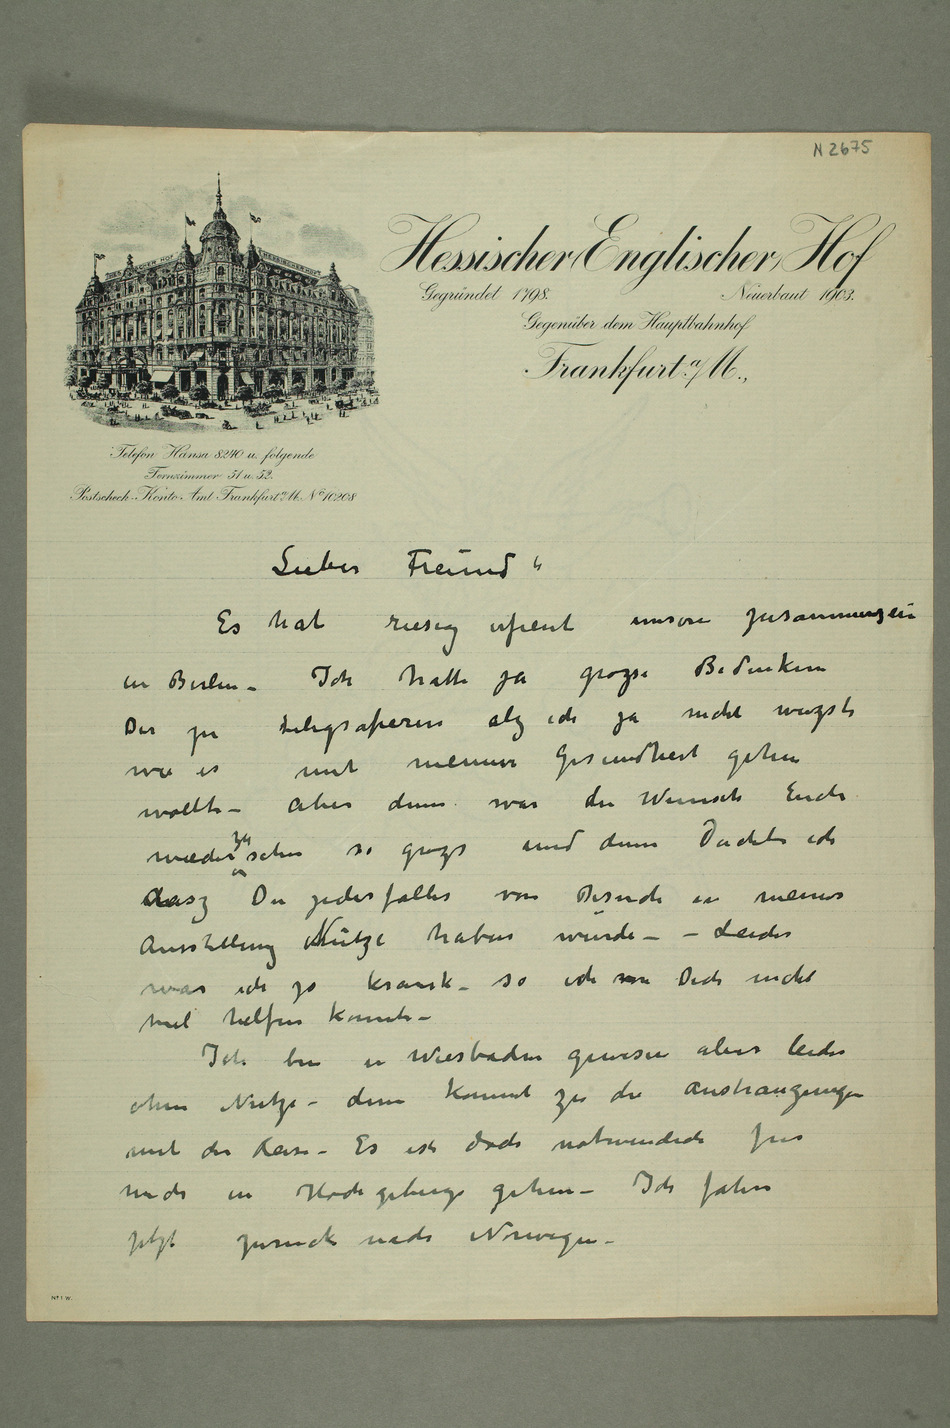 N 2675
HESSISCHER HOF
Hessischer (Englischer) Hof
Gegründet 1798. Neuerbaut 1903.
Gegenüber dem Hauptbahnhof
Frankfurt a/M.,
Telefon Hansa 8240 u. folgende
Fernzimmer 51 u. 52.
Postscheck-Konto Amt Frankfurt a/M. No 10208
Lieber Freund
Es hat riesig erfreut unsere zusammenzein
in Berlin – Ich hatte ja grozse Bedenken
Dir zu telegrafieren alz ich ja nicht wuzste
wie es mit meiner Gesundheit gehen
wollte – aber denn war die Wunsch Euch
wieder zu sehen so grozs und denn Dachte ich
dasz Du jedesfalles von Besuch in meines
Ausstellung Nutze haben würde – – Leider
war ich zo krank – so ich Dich nicht
viel helfen konnte –
Ich bin in Wiesbaden gewesen aber leider
ohne Nutze – denn kommt zu die anstrangungen
mit die Reise – Es ist doch notwendich für
mich in Hochgebirge gehen – Ich fahre
jetzt zurück nach Norwegen –
No 1 W.